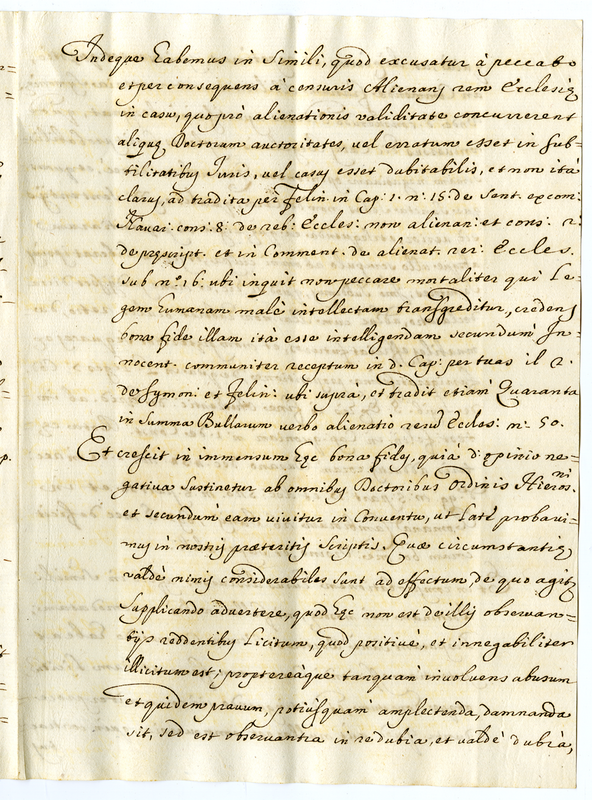 Indeque habemus in simili, quod excusatur à peccato
et per consequens à censuris Alienans rem Ecclesię
in casu, quo pró alienationis validitate concurrerent
aliquę Doctorum auctoritates, vel erratum esset in sub=
tilitatibus Iuris, vel casus esset dubitabilis, et non ità
clarus, ad tradita per Felin: in Cap: 1. n.º 15. de Sent. excom:
Navar. cons: 8. de reb: Eccles: non alienan: et cons: 2.
de pręscript. et in Comment. de alienat. rer: Eccles.
sub n.º 16. ubi inquit non peccare mortaliter qui Le=
gem humanam malè intellectam transgreditur, credens
bona fide illam ità esse intelligendam secundum In=
nocent. communiter receptum in d. Cap: per tuas il 2.
de Symon: et Felin: ubi suprà, et tradit etiam Quaranta
in Summa Bullarum verbo alienatio rerũ Eccles: n.º 50.
Et crescit in immensum hęc bona fides, quià dª opinio ne=
gativa sustinetur ab omnibus Doctoribus Ordinis Hieros.ni
et secundum eam vivitur in Conventu, ut latè probavi=
mus in nostris præteritis Scriptis. Quæ circumstantię
valdè nimis considerabiles sunt ad effectum, de quo agitr
Supplicando advertere, quod hęc non est de illis observan=
tijs reddentibus Licitum, quod positivè, et innegabiliter
illicitum est; proptereàque tanquam involvens abusum
et quidem pravum, potiùs quam amplectenda, damnanda
sit, sed est observantia in re dubia, et valdè dubia,